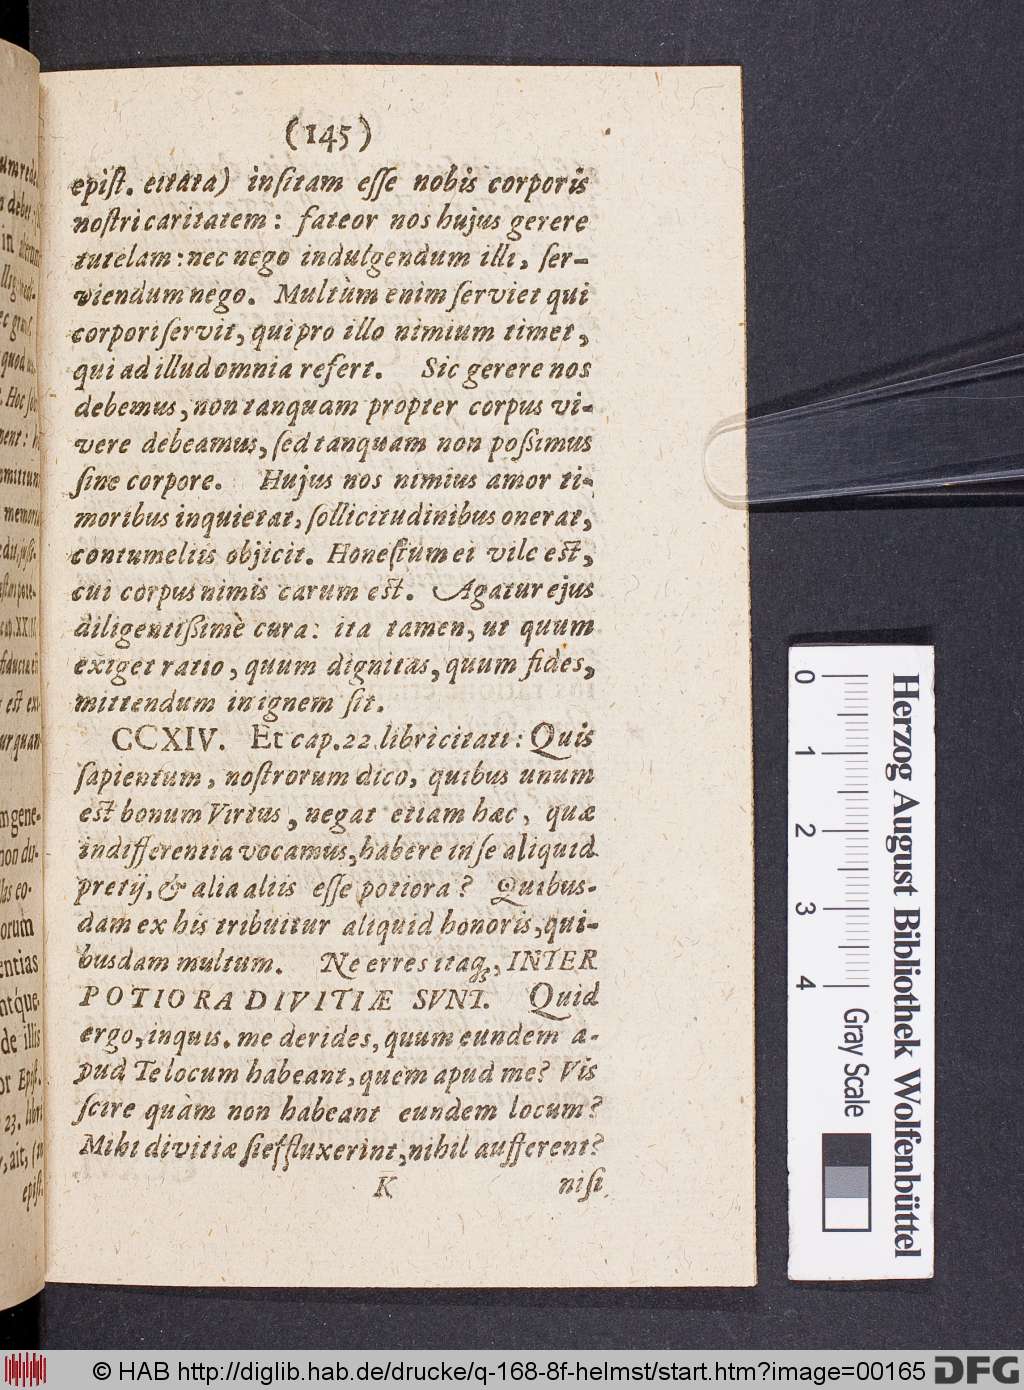 (145)
epiſt. citata) inſitam eſſe nobis corporis
noſtri caritatem: fateor nos hujus gerere
tutelam: nec nego indulgendum illi, ſer-
viendum nego. Multùm enim ſerviet qui
corpori ſervit, qui pro illo nimium timet,
qui ad illud omnia refert. Sic gerere nos
debemus, non tanquam propter corpus vi-
vere debeamus, ſed tanquam non poſſimus
ſine corpore. Hujus nos nimius amor ti-
moribus inquietat, ſollicitudinibus onerat,
contumeliis objicit. Honeſtum ei vile eſt,
cui corpus nimis carum eſt. Agatur ejus
diligentiſſimè cura: ita tamen, ut quum
exiget ratio, quum dignitas, quum fides,
mittendum in ignem ſit.
CCXIV. Et cap. 22 libri citati: Quis
ſapientum, noſtrorum dico, quibus unum
eſt bonum Virtus, negat etiam hæc, quæ
indifferentia vocamus, habere in ſe aliquid
pretij, & alia aliis eſſe potiora? Quibus-
dam ex his tribuitur aliquid honoris, qui-
busdam multum. Ne erres itaq;, INTER
POTIORA DIVITIÆ SVNT. Quid
ergo, inquis. me derides, quum eundem a-
pud Te locum habeant, quem apud me? Vis
ſcire quàm non habeant eundem locum?
Mihi divitiæ ſi effluxerint, nihil aufferent?
K niſi
Herzog August Bibliothek Wolfenbüttel
0 1 2 3 4
Gray Scale
© HAB http://diglib.hab.de/drucke/q-168-8f-helmst/start.htm?image=00165
DFG